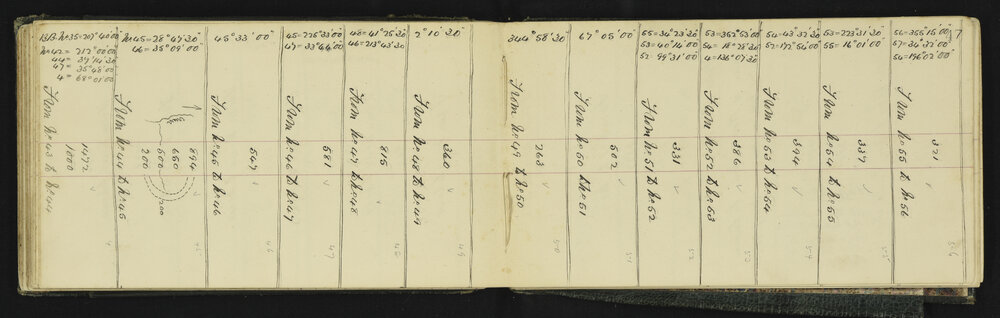 B.B. No 35 = 207°40'00"
No 42 = 212°00'00"
44 = 39°14'30
47 = 35°48'00
4 = 68°01'00
From No 43 to No 44
1472
1000
No 45 = 28°47'30
46 = 35°09'00
From No 44 to No 45
894
650
500
200
200
45
45°33'00"
From No 45 to No 46
547
46
45 = 225°33'00
47 = 33°44'00
From No 46 to No 47
581
47
48 = 41°25'30
46 = 213°43'30
From No 47 to No 48
815
48
2°10'30"
From No 48 to No 49
360
49
344°58'30
From No 49 to No 50
263
50
67°05'00
From No 50 to No 51
502
51
55 = 34°23'30
53 = 40°14'00
52 = 99°31'00
From No 51 to No 52
331
52
53 = 352°53'00
54 = 18°28'30
4 = 136°07'30
From No 52 to No 53
386
53
54 = 43°37'30
52 = 172°54'00
From No 53 to No 54
394
54
53 = 223°31'30
55 = 16°01'00
From No 54 to No 55
337
55
56 = 355°15'00
57 = 34°32'00
54 = 196°02'00
From No 55 to No 56
321
56
7